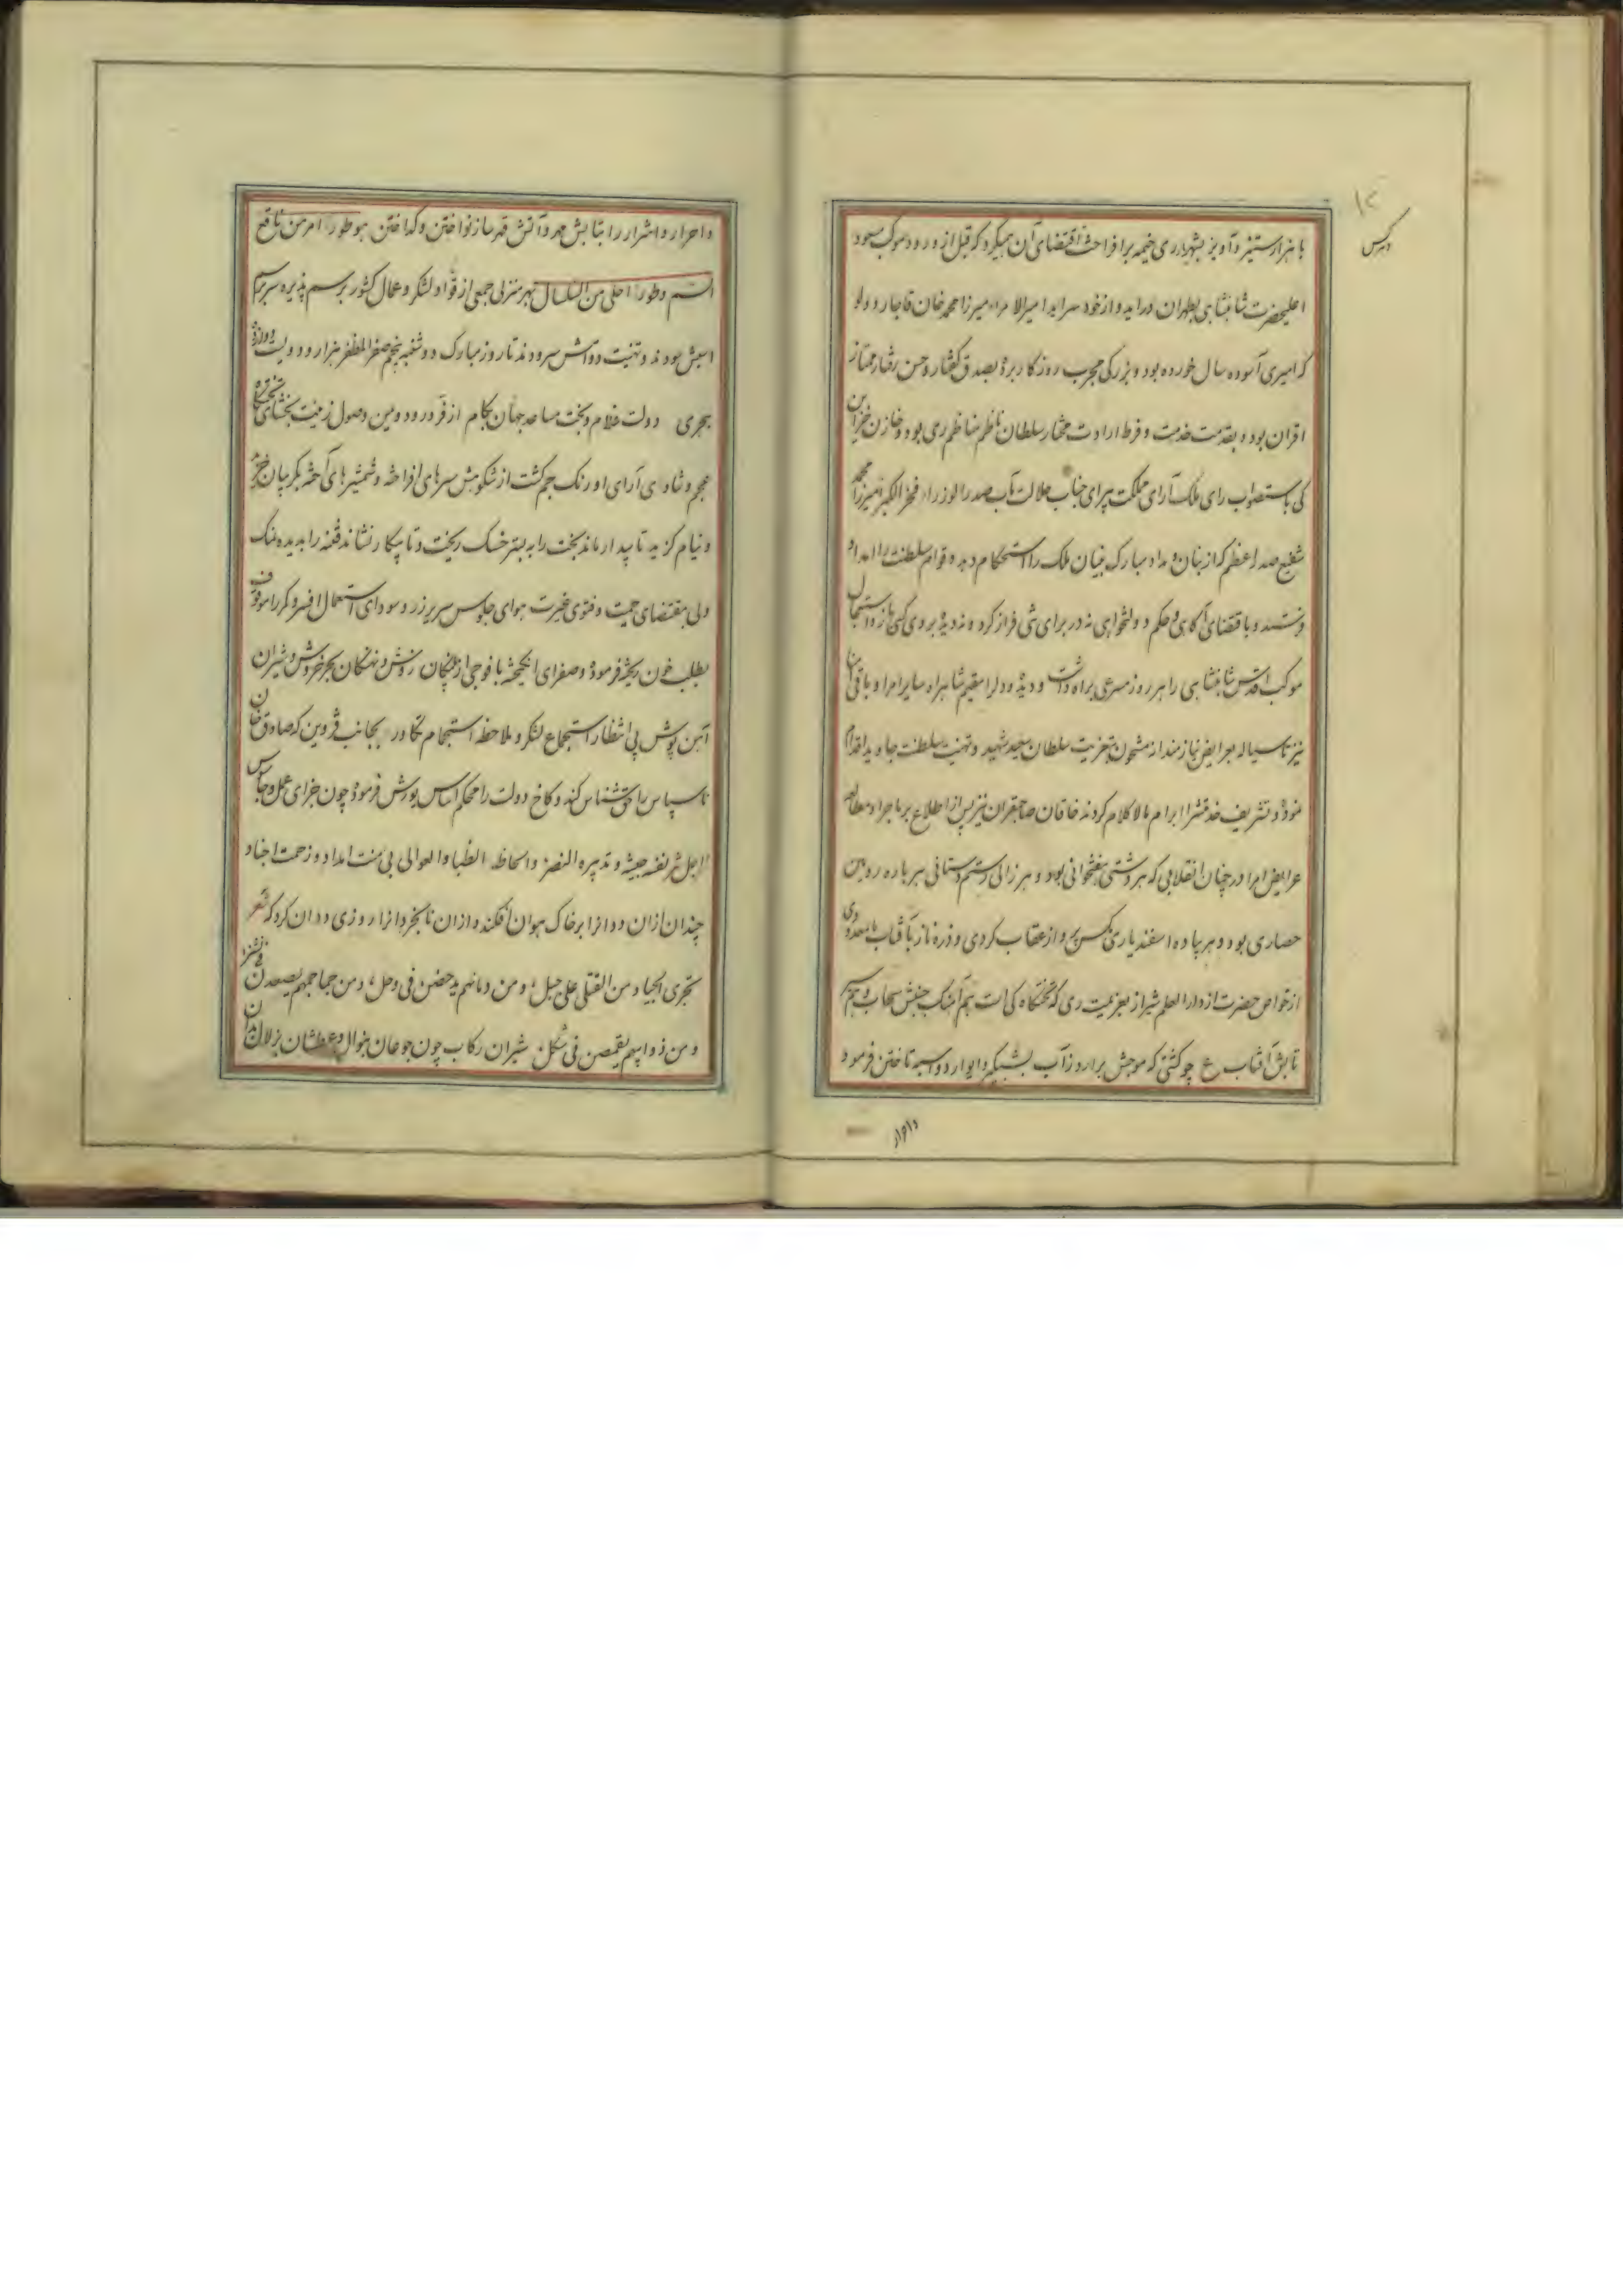 با هزار ستیز و آویز بشهریاری خیمه برافراخته اقتضای آن میکرد که قبل از ورود موکب مسعود
اعلیحضرت شاهنشاهی بطهران دراید و از خود سراید امیرالامراء میرزا محمد خان قاجار دولو
که امیری آسوده سال خورده بود و بزرگی مجرب روزگار برده بصدق گفتار و حسن رفتار ممتاز
اقران بود و بقدمت خدمت و فرط ارادت مختار سلطان ناظم مناظم ری بود و خازن خزاین
کی باستصواب رای ملک آرای مملکت پیرای جناب جلالت مآب صدرالوزراء فخرالکبرا میرزا محمد
شفیع صدر اعظم که از بنان و مداد مبارک بنیان ملک را استحکام دهد و قوام سلطنت را امداد
و باقتضای آگاهی و حکم دولتخواهی نه در برای شی فراز کرد و نه دیده بروی کسی باز و استعجال
موکب اقدس شاهنشاهی را هر روز مسرعی براه داشت و دیده و دل را مقیم شاهراه سایر امرا و باقی
نیز بعرایض نیازمندانه مشحون بتعزیت سلطان سعید شهید و تهنیت سلطنت جاوید اقدام
نموده و تشریف خدمتش را ابرام مالاکلام کردند خاقان صاحبقران نیز پس از اطلاع بر ماجرا و مطالعه
عرایض امرا در چنان انقلابی که هر دشتی هفتخوانی بود و هر زالی رستم دستانی هر باره رویین
حصاری بود و هر پیاده اسفندیاری مگس پرواز عقاب کردی و ذره ناز بآفتاب
از خواص حضرت از دارالعلم شیراز بعزیمت ری که تختگاه کی است هم آهنگ جنبش سحاب و هم
تابش آفتاب ع چو کشتی که موجش برارد ز آب بشبگیر و ایوار دو اسبه تاختن فرمود
و احرار
و احرار و اشرار را بتابش مهر و آتش قهر ساز نواختن و گداختن هو طوراً امر من ناقع
السم و طوراً احلی من السلسال بهر منزلی جمعی از قواد لشکر و عمال کشور برسم پذیره سر بر سم
اسبش سودند و تهنیت دولتش سرودند تا روز مبارک دوشنبه پنجم صفر المظفر هزار و دویست و دوازده
هجری دولت غلام و بخت مساعد جهان بکام از فر ورود و یمن وصول زینت بخشای تختگاه
عجم و شادی آرای اورنگ جم گشت از شکوهش سرهای افراخته و شمشیرهای آخته بگریبان خزید
و نیام گزید تا بیدار ماند بخت را به بستر خسک ریخت و تا پیکار نشاند فتنه را بدیده نمک
ولی بمقتضای حمیت و فتوی غیرت هوای جلوس سریر زر و سودای استعمال افسر و کمر را موقوف
بطلب خون ریخته فرموده و صفرای انگیخته با فوجی از پلنگان روش و نهنگان بحر خروش و شیران
آهن پوش بی انتظار استجماع لشکر و ملاحظه استجمام تکاور بجانب قزوین که صادق خان
ناسپاس را حق شناس کند و کاخ دولت را محکم اساس یورش فرموده چون جزای عمل و جاس
اجل شریفه جیشه و تدبیره النصر و الحاظه الظبا و العوالی بی منت امداد و زحمت اجناد
چندان از آن ددان را بر خاک هوان افکند و از آن نابخردان را روزی ددان کرد که شعر
تجری الجیاد من القتلی علی جبل و من دمائهم یدحضن فی وحل و من جماجمهم یصعدن
و من ذوائبهم یقمصن فی شکل شیران رکاب چون جوعان بنوال و عطشان بزلال